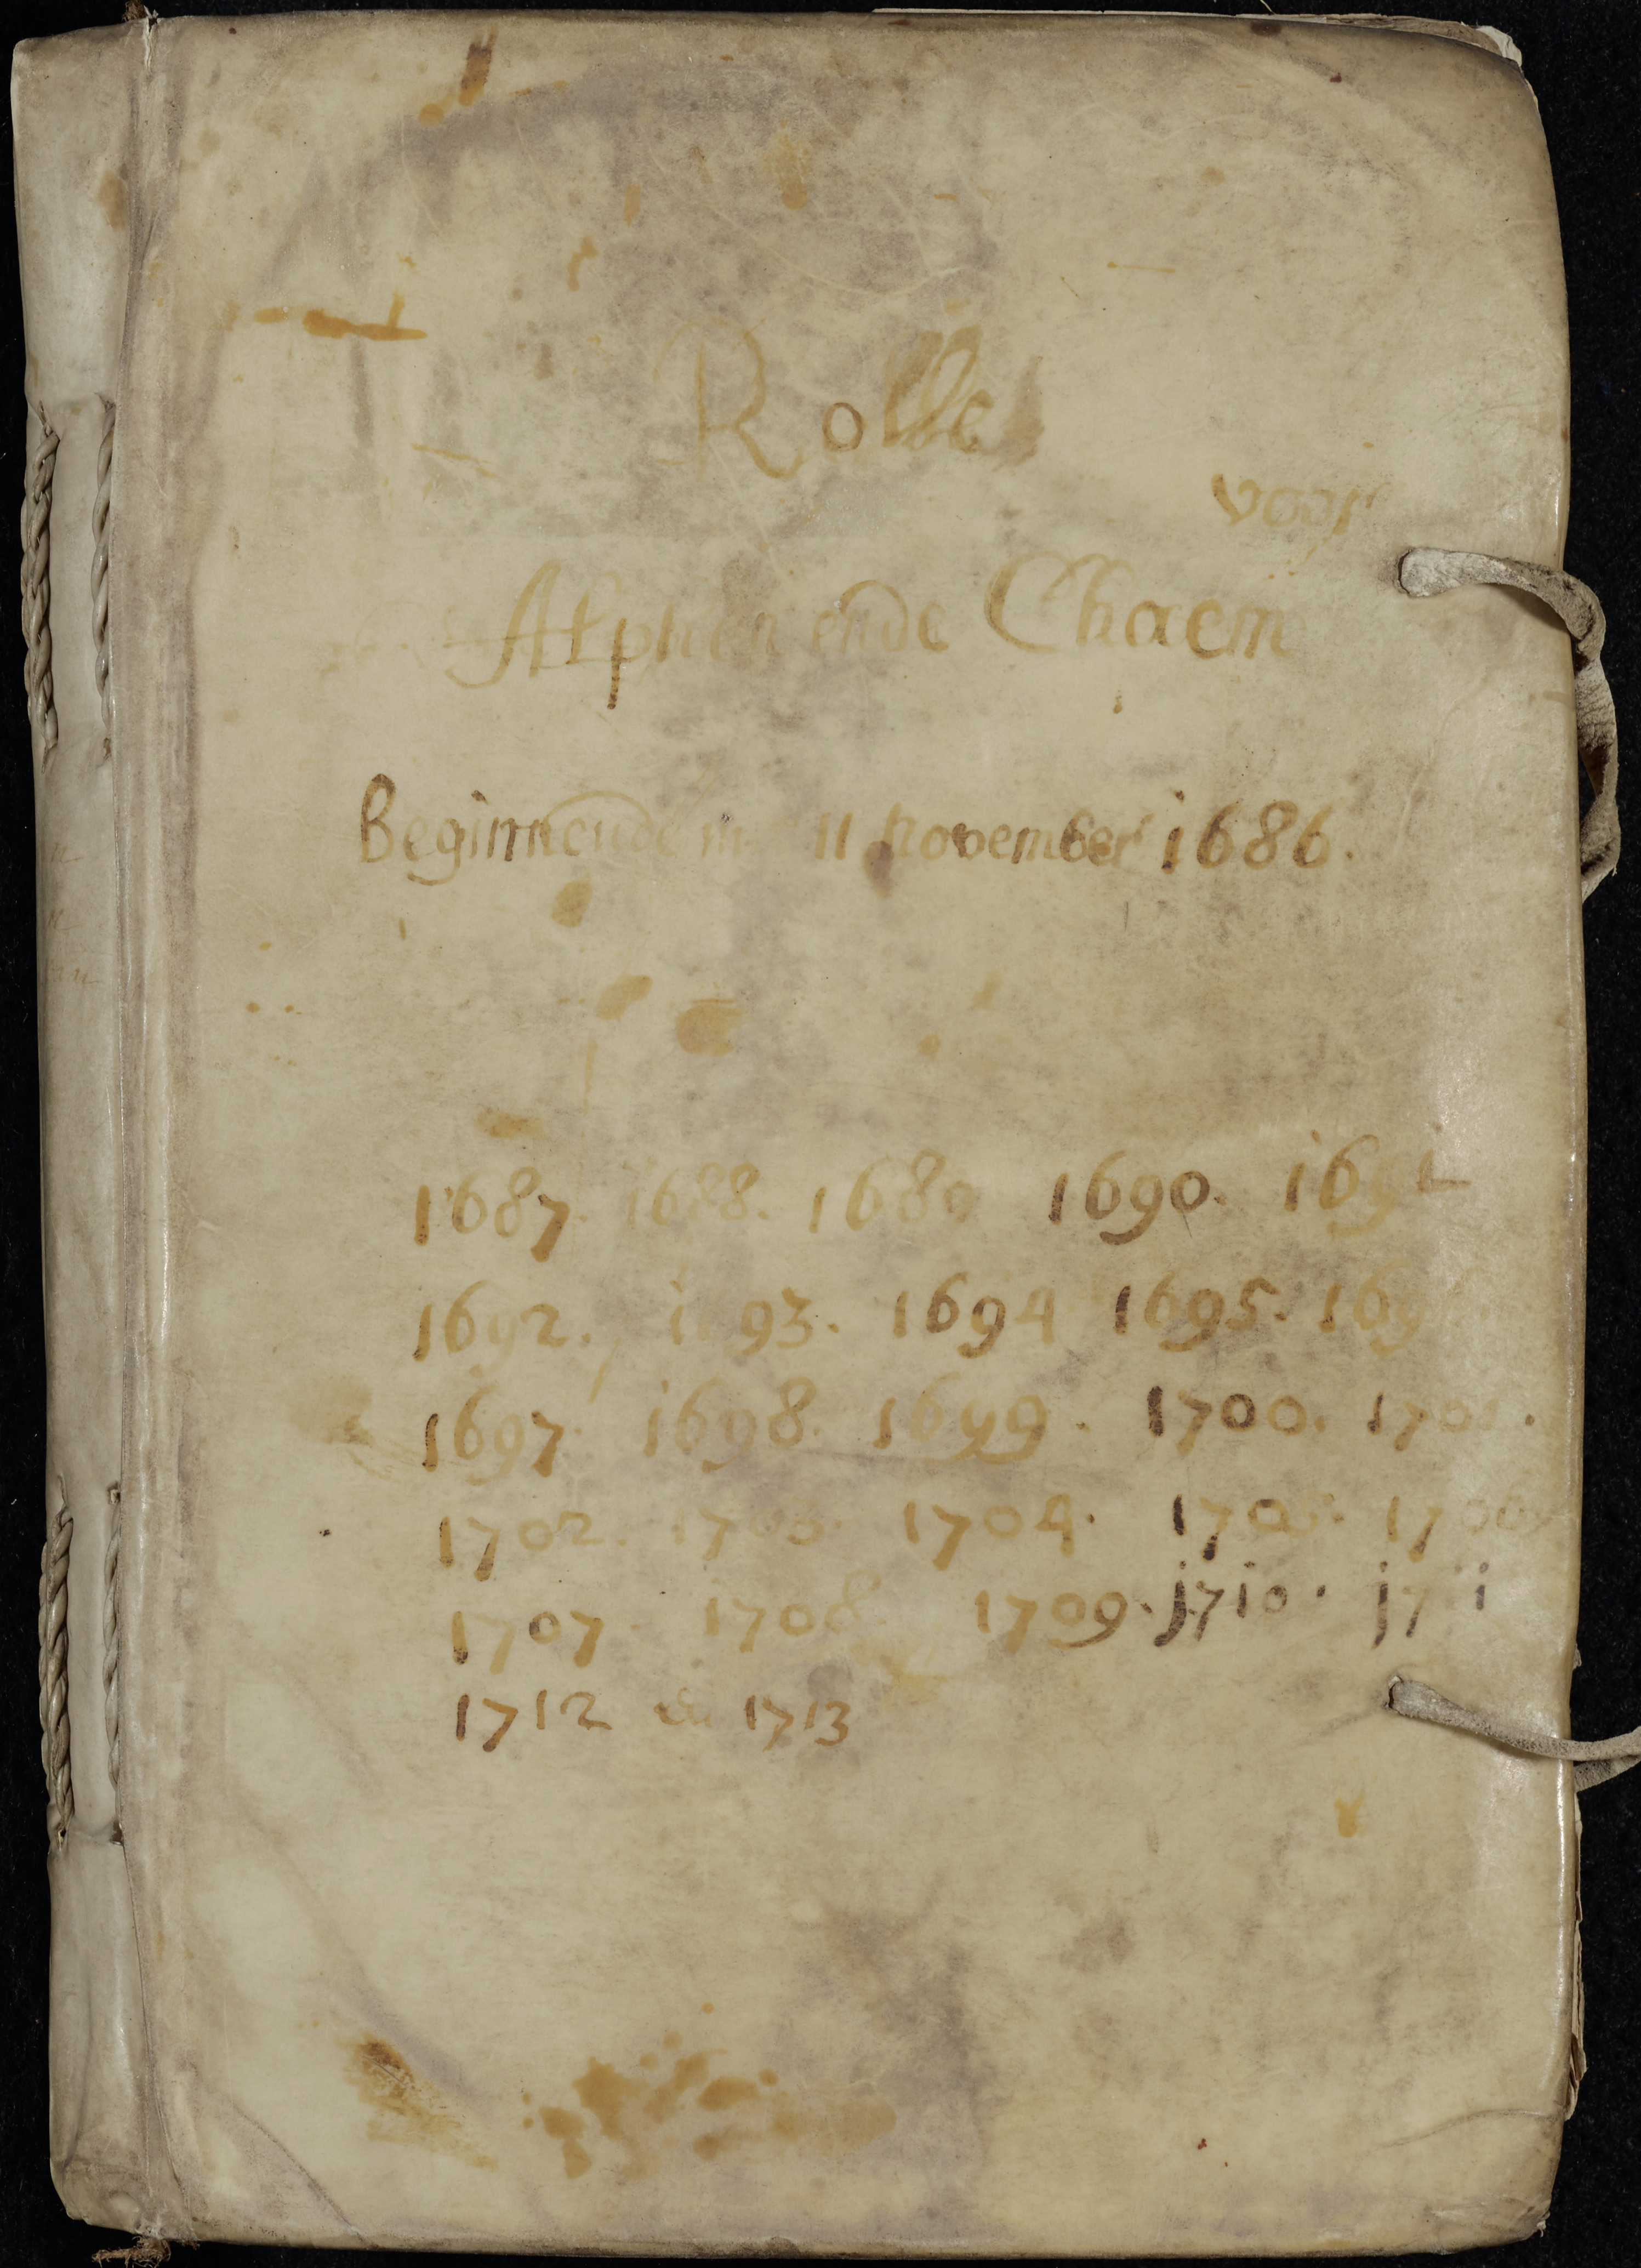 Rolle
voor
Alphen ende Chaem
Beginnende 11 november 1686.
1687. 1688. 1689 1690. 1691
1692. 1693. 1694 1695. 1696
1697. 1698. 1699. 1700. 1701.
1702. 1703. 1704. 1705. 1706
1707. 1708. 1709. j710. j711
1712 en 1713